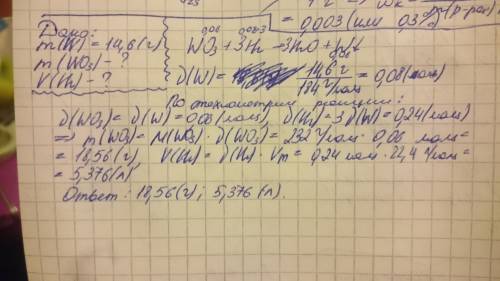 = 0,003 (или 0,3%)
Дано:
m(W) = 14,6 (г)
m(WO₃) - ?
V(H₂) - ?
0,08 0,08·3
WO₃ + 3H₂ → 3H₂O + W↓
0,08
ν(W) = 14,6 г / 184 г/моль = 0,08 (моль)
По стехиометрии реакции:
ν(WO₃) = ν(W) = 0,08 (моль), ν(H₂) = 3ν(W) = 0,24 (моль)
⇒ m(WO₃) = M(WO₃) · ν(WO₃) = 232 г/моль · 0,08 моль =
= 18,56 (г), V(H₂) = ν(H₂) · Vm = 0,24 моль · 22,4 л/моль =
= 5,376 (л)
Ответ: 18,56 (г); 5,376 (л).